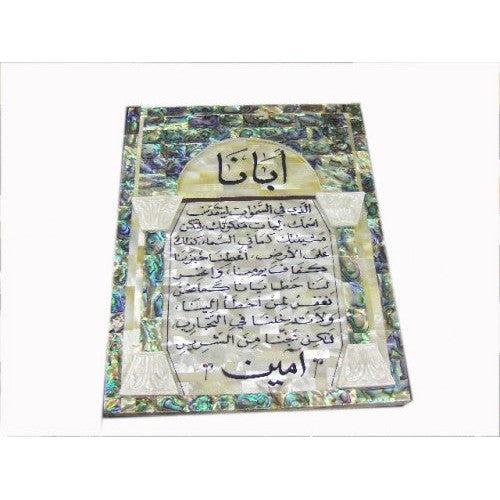 أبانا
الذي في السموات ليتقدس
اسمك ليأت ملكوتك لتكن
مشيئتك كما في السماء كذلك
على الأرض، أعطنا خبزنا
كفاف يومنا، واغفر
لنا خطايانا كما نحن
نغفر لمن أخطأ إلينا،
ولا تدخلنا في التجارب
لكن نجنا من الشرير
آمين